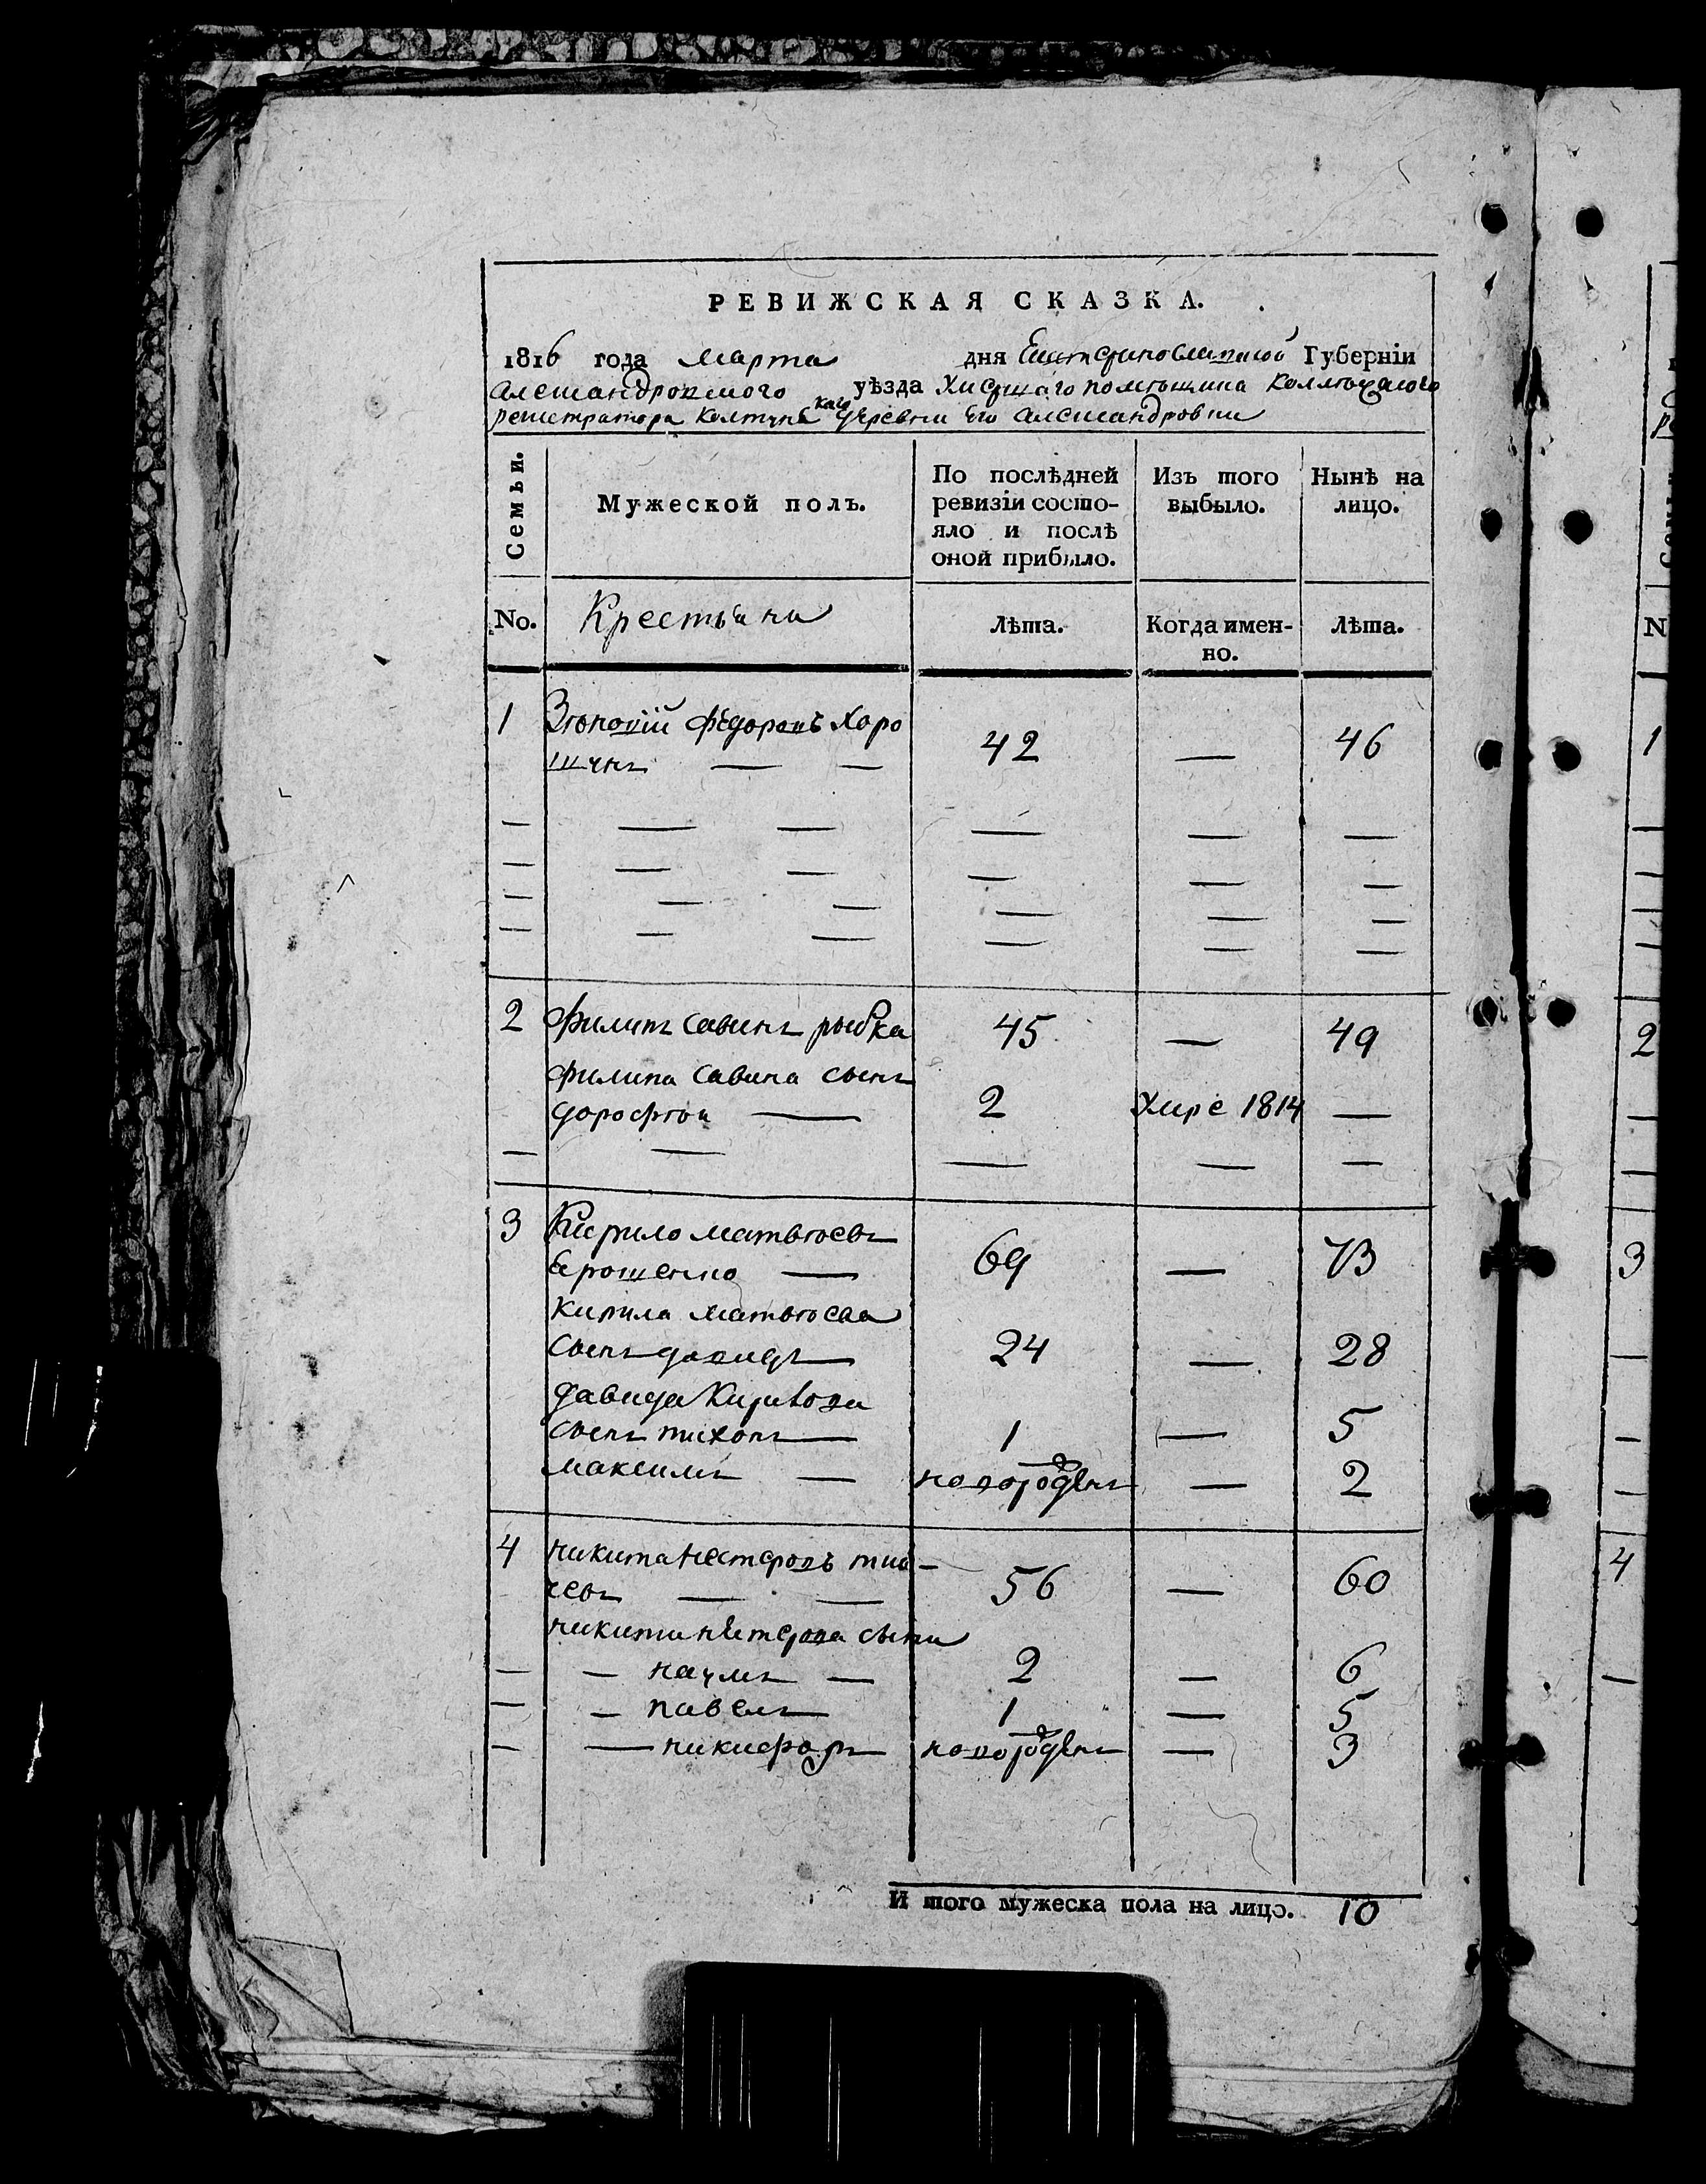 РЕВИЖСКАЯ СКАЗКА.
1816 года марта дня Екатеринославской Губерніи
Александровского уѣзда помѣщика Коллѣжского
регистратора Колтуновкаго деревни его Александровки
Семьи. Мужеской полъ. По послѣдней ревизіи состояло и послѣ оной прибыло. Изъ того выбыло. Нынѣ на лицо.
No. Крестьяни Лѣта. Когда именно. Лѣта.
1 Зѣновій Федоровъ Хоро
шунъ — — 42 — 46
— — — — — —
— — — — — —
— — — — — —
— — — — — —
2 Филипъ Савинъ рыбка 45 — 49
Филипа Савина сынъ
дорофѣй — 2 Умре 1814 —
— — — — —
3 Кирило матвѣевъ
Ерошенко — 69 — 73
Кирила матвѣева
сынъ давидъ — 24 — 28
давида Кирилова
сынъ тихонъ — 1 — 5
максимъ — новорожденъ — 2
4 никита нестеровъ тка-
чевъ — — 56 — 60
никити нестерова сыни
— — наумъ — 2 — 6
— — павелъ — 1 — 5
— — никифоръ новорожденъ — 3
И того мужеска пола на лицо. 10
1
2
3
4